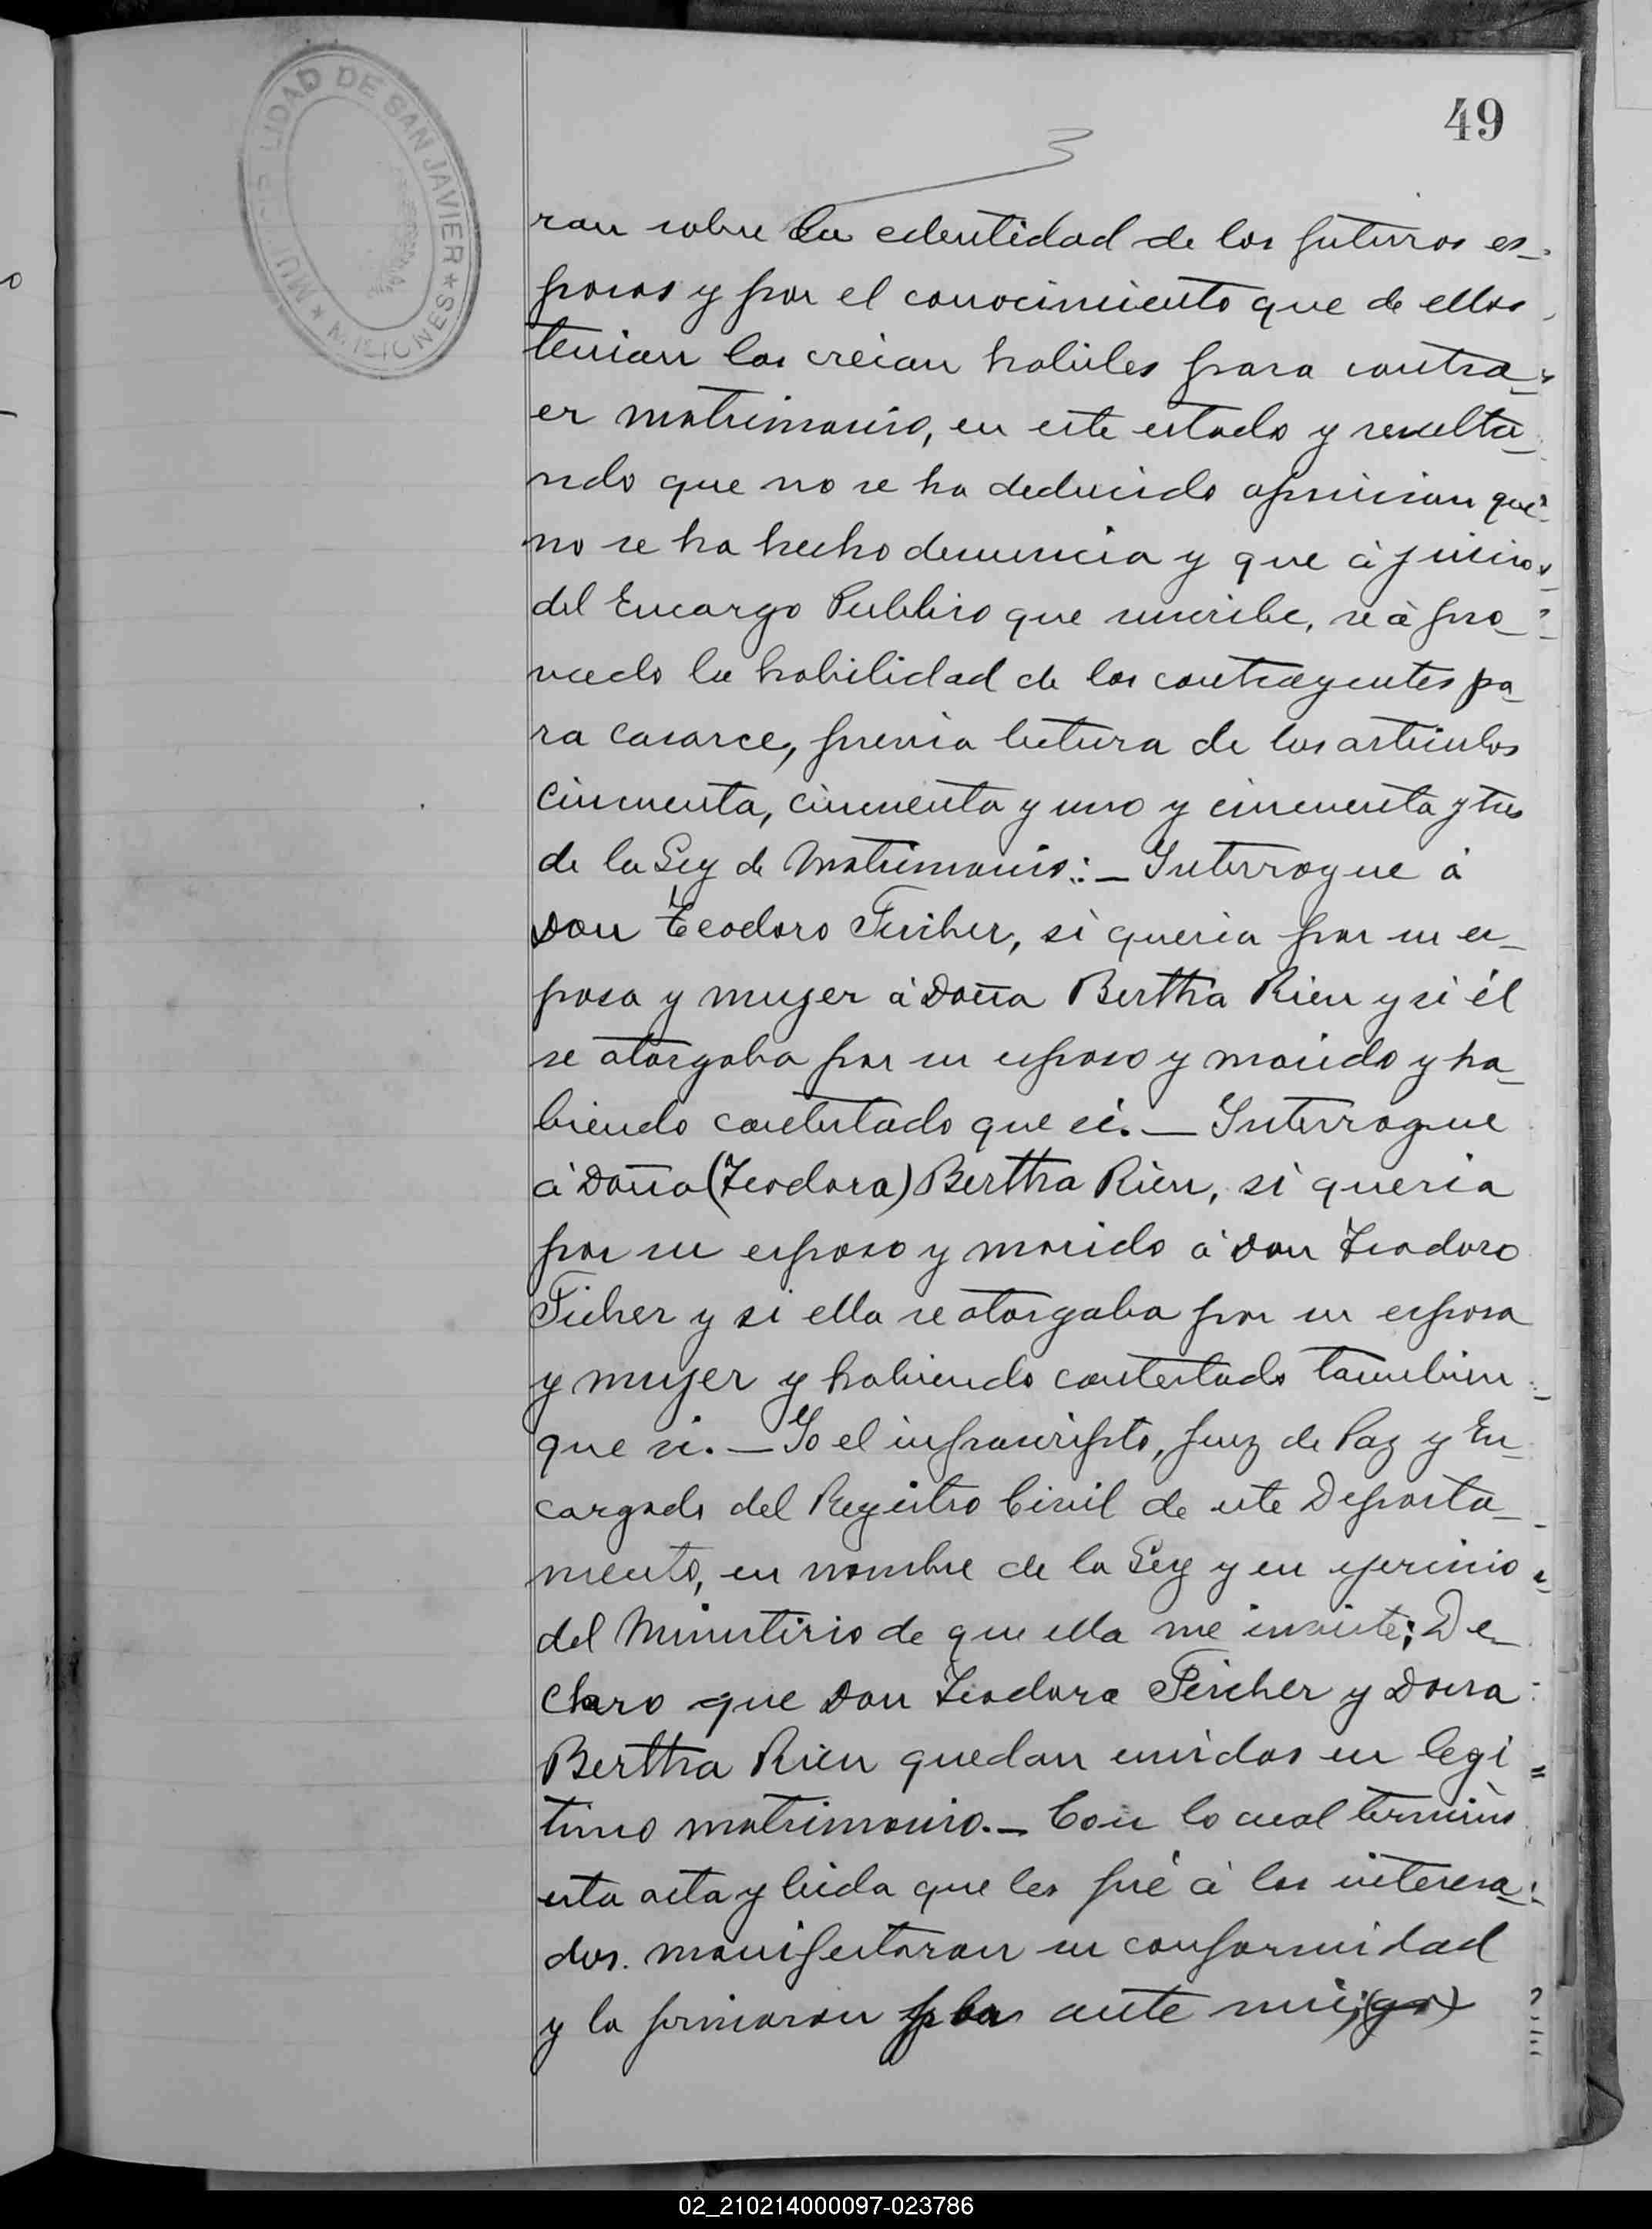 49
MUNICIPALIDAD DE SAN JAVIER * MISIONES *
ran sobre la edentidad de los futuros es-
posos y por el conocimiento que de ellos
tenian los creian habiles para contra-
er matrimonio, en este estado y resulta-
ndo que no se ha deducido opinion que
no se ha hecho denuncia y que á juicio
del Encargo Publico que suscribe, se á pro-
vado la habilidad de los contrayentes pa-
ra casarce, previa lectura de los articulos
cincuenta, cincuenta y uno y cincuenta y tres
de la Ley de Matrimonio:- Interrogue á
Don Teodoro Fischer, si queria por su es-
posa y mujer á Doña Bertha Rien y si él
se otorgaba por su esposo y marido y ha-
biendo contestado que si.- Interrogue
á Doña (Teodora) Bertha Rien, si queria
por su esposo y marido á Don Teodoro
Ficher y si ella se otorgaba por su esposa
y mujer y habiendo contestado tambien
que si.- Yo el infrascripto, Juez de Paz y En-
cargado del Registro Civil de este Departa-
mento, en nombre de la Ley y en ejercicio
del Ministirio de que ella me inviste; De-
claro que Don Teodoro Fischer y Doña
Bertha Rien quedan unidos en legi=
timo matrimonio.- Con lo cual terminó
esta acta y leida que les fué á los interesa-
dos. manifestaron su conformidad
y la firmaron ante mi;
02_210214000097-023786